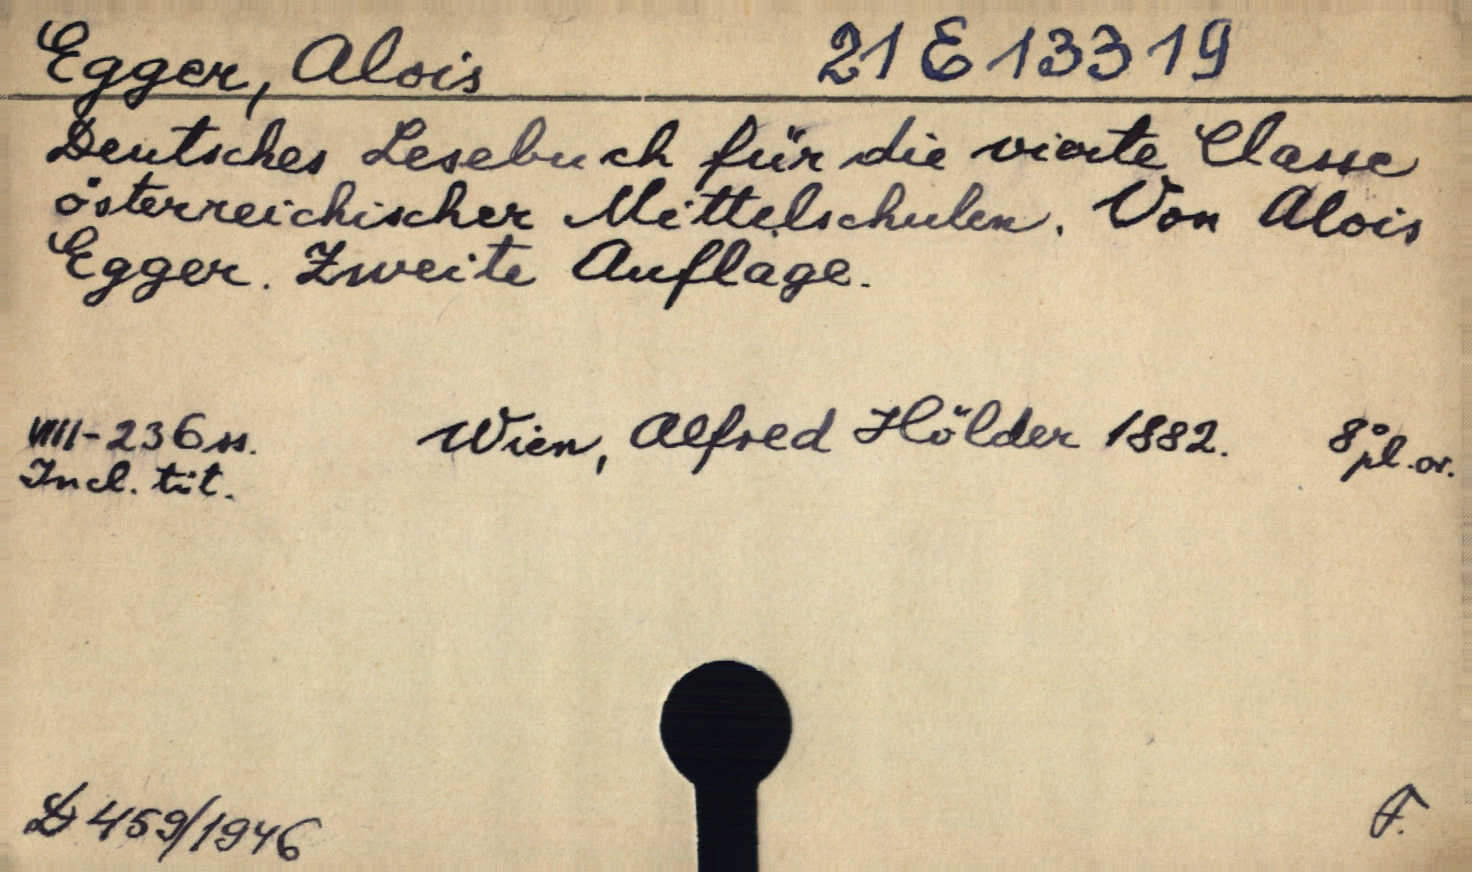 Egger, Alois 21 E 13319
Deutsches Lesebuch für die vierte Classe
österreichischer Mittelschulen. Von Alois
Egger. Zweite Auflage.
VIII-236 ss. Wien, Alfred Hölder 1882. 8° pl. or.
Incl. tit.
D 459/1946 F.